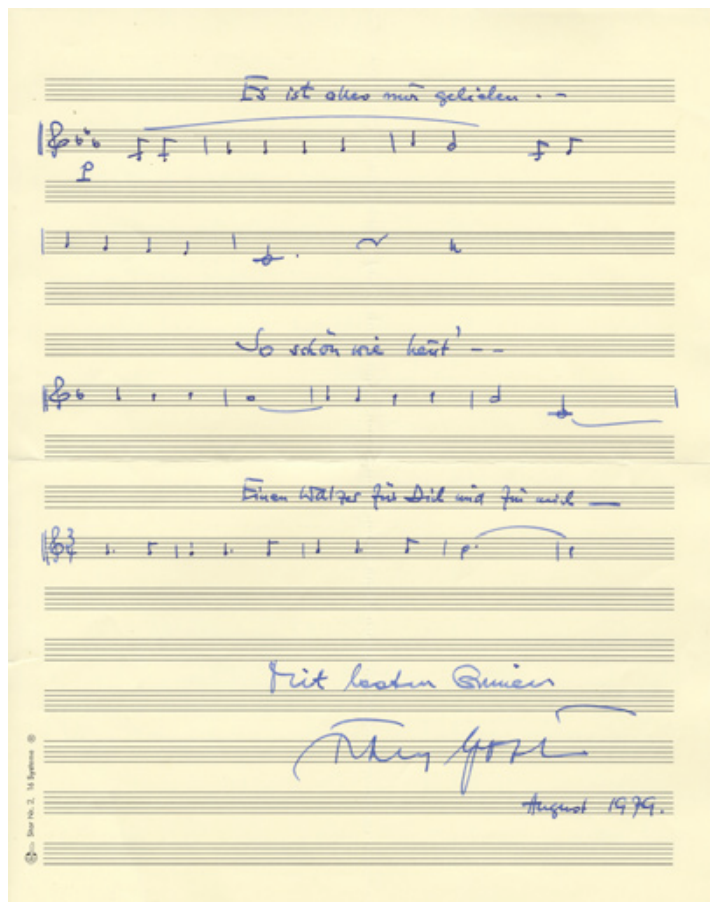 Es ist alles nur geliehen . –
p
So schön wie heut' – –
3
4
Einen Walzer für Dich und für mich —
Mit besten Grüssen
August 1979.
Star Nr. 2, 16 Systeme